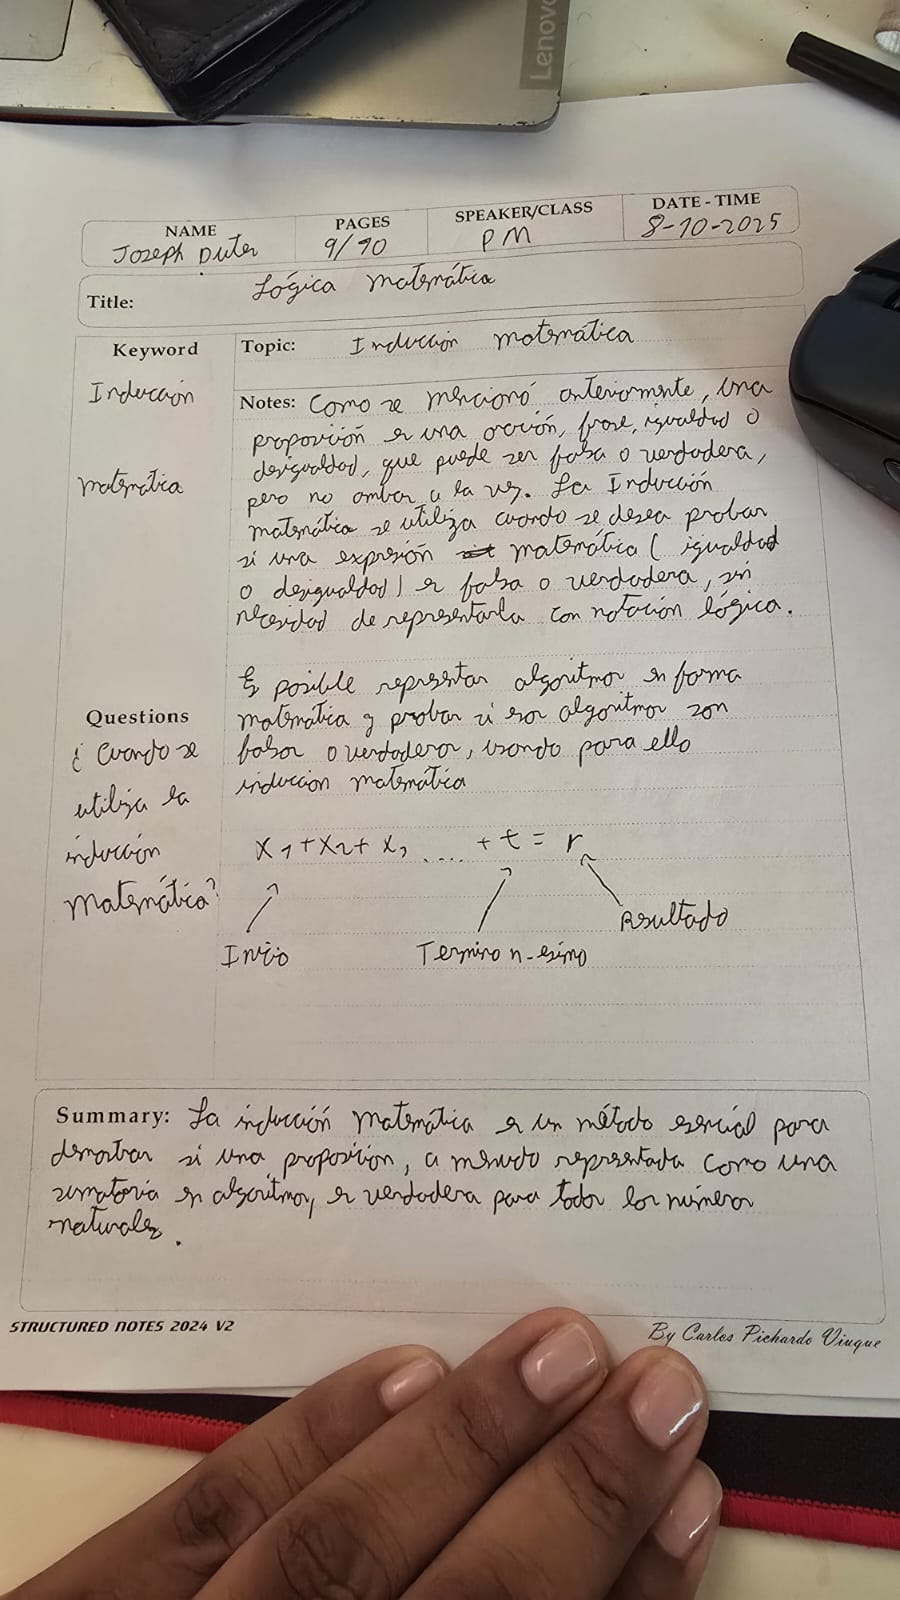 Lenovo
NAME
PAGES
SPEAKER/CLASS
DATE - TIME
Joseph Duter
9/90
PM
8-10-2025
Title: Lógica matemática
Keyword
Topic: Inducción matemática
Inducción
matemática
Notes: Como se mencionó anteriormente, una
proposición es una oración, frase, igualdad o
desigualdad, que puede ser falsa o verdadera,
pero no ambas a la vez. La Inducción
matemática se utiliza cuando se desea probar
si una expresión matemática (igualdad
o desigualdad) es falsa o verdadera, sin
necesidad de representarla con notación lógica.
Es posible representar algoritmos en forma
matemática y probar si esos algoritmos son
falsos o verdaderos, usando para ello
induccion matemática
Questions
¿Cuando se
utiliza la
inducción
matemática?
X1+X2+X3 .... + t = r
Inicio
Termino n-esimo
Resultado
Summary: La inducción matemática es un método esencial para
demostrar si una proposición, a menudo representada como una
sumatoria en algoritmos, es verdadera para todos los números
naturales.
STRUCTURED NOTES 2024 V2
By Carlos Pichardo Viuque